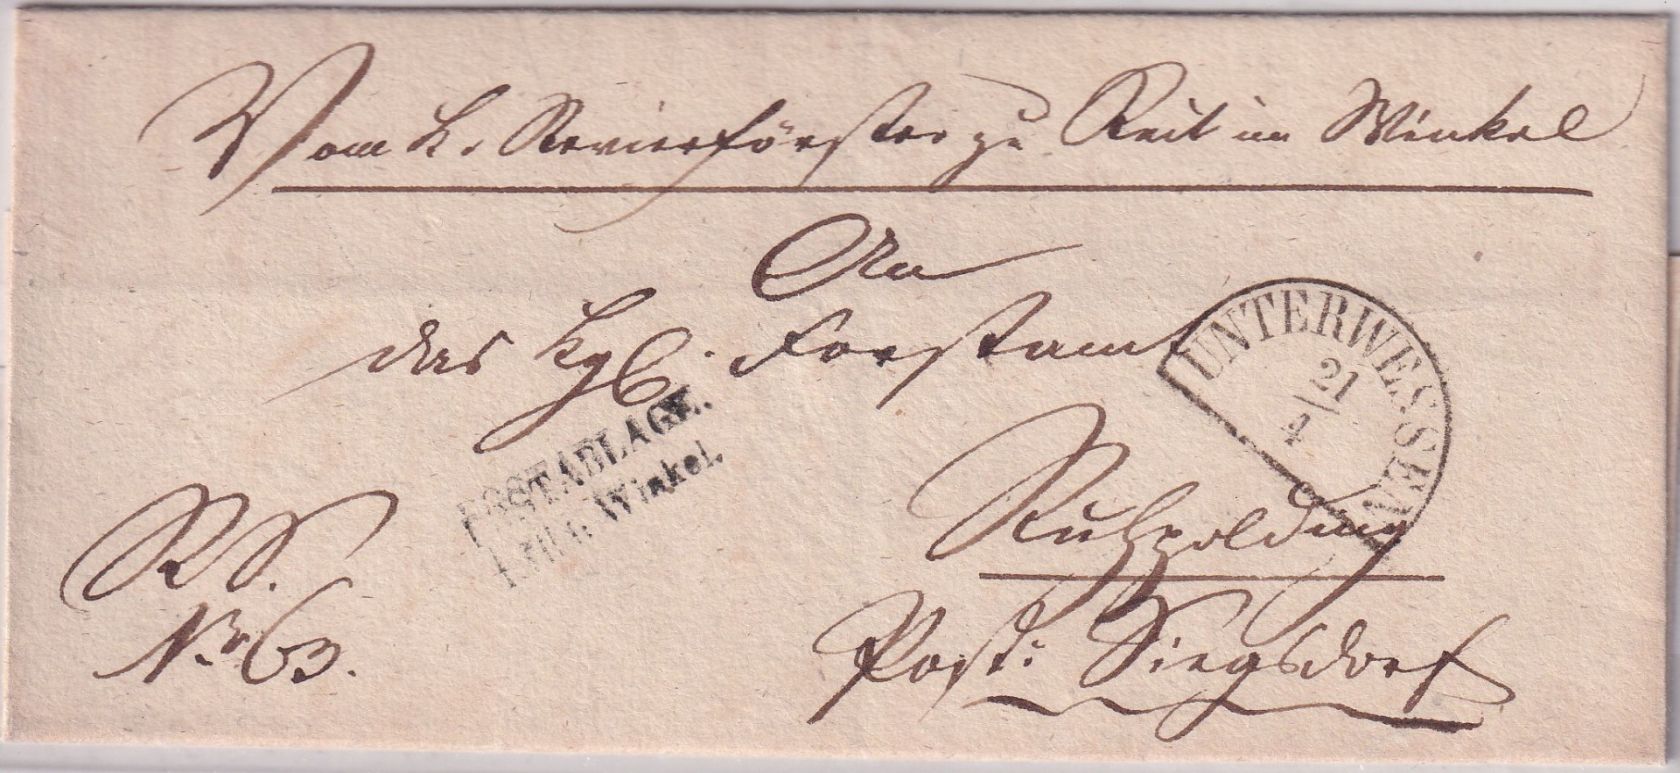 Vom K. Revierförster zu Reit im Winkel
An
das Kgl. Forstamt
UNTERWESSEN
21
4
POSTABLAGE.
Winkel.
Ruhpolding
R. S.
Nr. 63.
Post: Siegsdorf